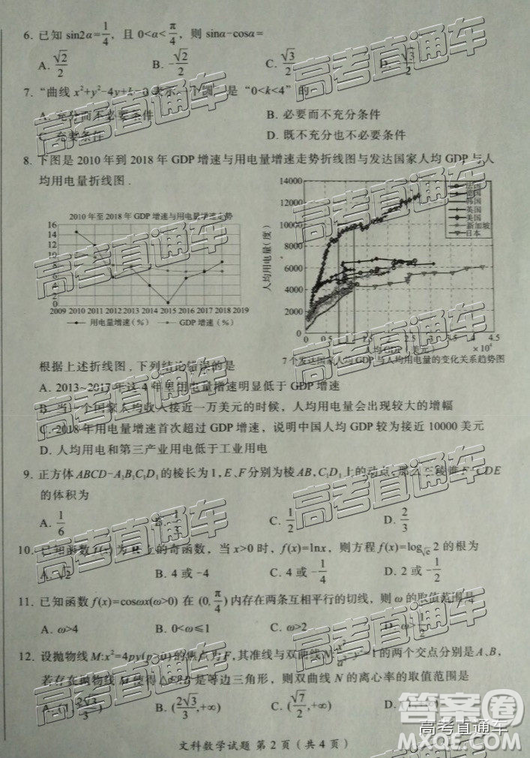 6. 已知 sin2α=1/4, 且 0<α<π/4, 则 sinα-cosα=
A. √2/2 B. -√2/2 C. √3/2 D. √3/2
7. “曲线 x²+y²-4y+k=0 表示一个圆”是“0<k<4”的
A. 充分而不必要条件 B. 必要而不充分条件
C. 充要条件 D. 既不充分也不必要条件
8. 下图是 2010 年到 2018 年 GDP 增速与用电量增速走势折线图与发达国家人均 GDP 与人
均用电量折线图.
2010 年至 2018 年 GDP 增速与用电量增速走势
16
14
12
10
8
6
4
2
0
2009 2010 2011 2012 2013 2014 2015 2016 2017 2018 2019
用电量增速(%) GDP 增速(%)
人均用电量(度)
14000
12000
10000
8000
6000
4000
2000
0
韩国
英国
美国
新加坡
日本
0 0.5 1 1.5 2 2.5 3 3.5 4 4.5
×10⁴
7个发达国家人均 GDP 与人均用电量的变化关系趋势图
根据上述折线图, 下列结论错误的是
A. 2013~2017 年这 4 年里用电量增速明显低于 GDP 增速
B. 当一个国家人均收入接近一万美元的时候, 人均用电量会出现较大的增幅
C. 2018 年用电量增速首次超过 GDP 增速, 说明中国人均 GDP 接近 10000 美元
D. 人均用电和第三产业用电低于工业用电
9. 正方体 ABCD-A₁B₁C₁D₁ 的棱长为 1, E、F 分别为棱 上的动点, 那么三棱锥 CDE
的体积为
A. 1/6 B. 1/3 C. 1/2 D. 2/3
10. 已知函数 f(x) 为 R 上的奇函数, 当 x>0 时, f(x)=lnx, 则方程 f(x)=log 2 的根为
B. 4 或 -4 C. 4 D. 2 或 4
11. 已知函数 f(x)=cosωx(ω>0) 在 (0, π/4) 内存在两条互相平行的切线, 则 ω 的取值范围是
A. ω>4 B. 0<ω≤1 C. ω>2 D. ω≥4
12. 设抛物线 M:x²=4py(p>0) 的焦点为 F, 其准线与双曲线 N: -y²=1 的两个交点分别是 A、B,
若存在抛物线 M 使得△ABF 是等边三角形, 则双曲线 N 的离心率的取值范围是
A. (1, 2√3/3) B. (2√3/3, +∞) C. (√7/2, +∞) D.
文科数学试题 第 2 页(共 4 页)
高考直通车
高考直通车
高考直通车
高考直通车
高考直通车
高考直通车
答案圈
MXQE.COM